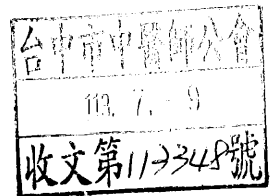 台中市中醫師公會
113. 7. - 9
收文第113348號